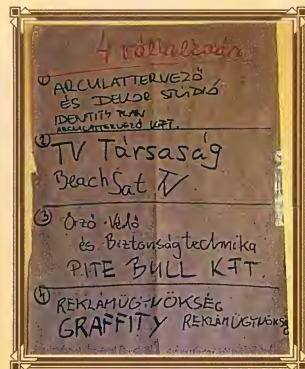 4 vállalkozás
1 ARCULATTERVEZŐ
ÉS DEKOR STÚDIÓ
IDENTITY PLAN
ARCULATTERVEZŐ KFT.
2 TV Társaság
BeachSat TV
3 Őrző-Védő
és Biztonságtechnika
PITE BULL KFT.
4 REKLÁMÜGYNÖKSÉG
GRAFFITY REKLÁMÜGYNÖKSÉG